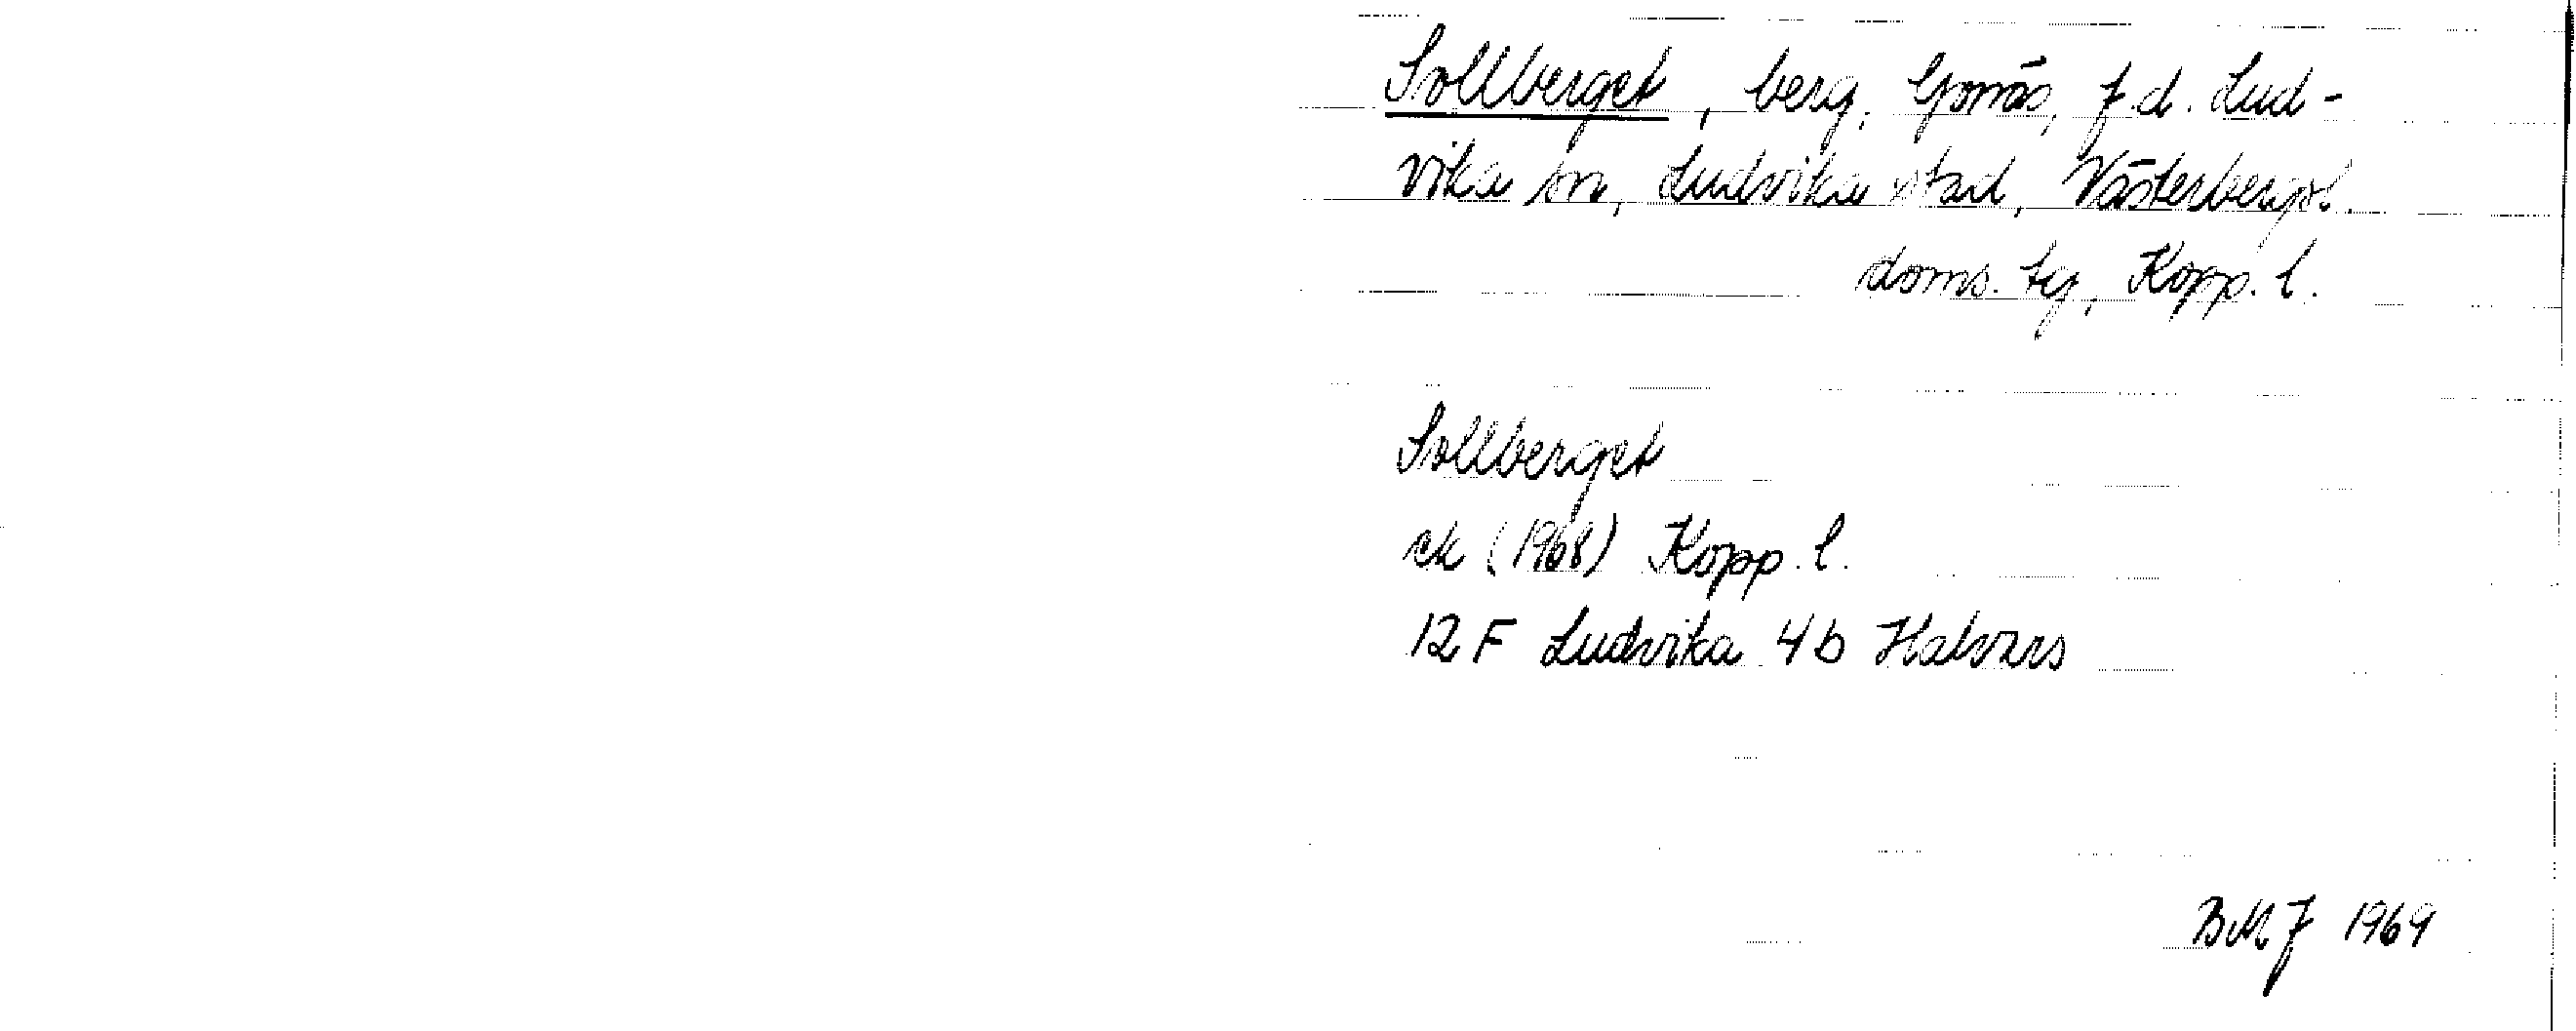 Sollberget, berg, Gonäs, f.d. Lud-
vika sn, Ludvika stad, Västerbergsl.
doms. tg, Kopp. l.
Sollberget
ek (1968) Kopp. l.
12 F Ludvika 4b Halvars
BMJ 1969